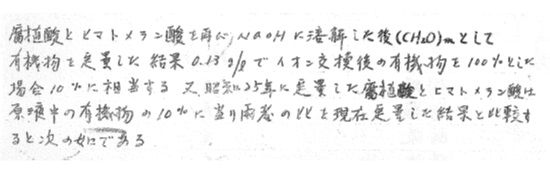 腐植酸とヒマトメラン酸を再びNaOHに溶解した後(CH₂O)mとして
有機物を定量した結果0.13g/ℓでイオン交換後の有機物を100%とした
場合10%に相当する 又昭和25年に定量した腐植酸とヒマトメラン酸は
原液中の有機物の10%に当り両者の比を現在定量した結果と比較す
ると次の如くである